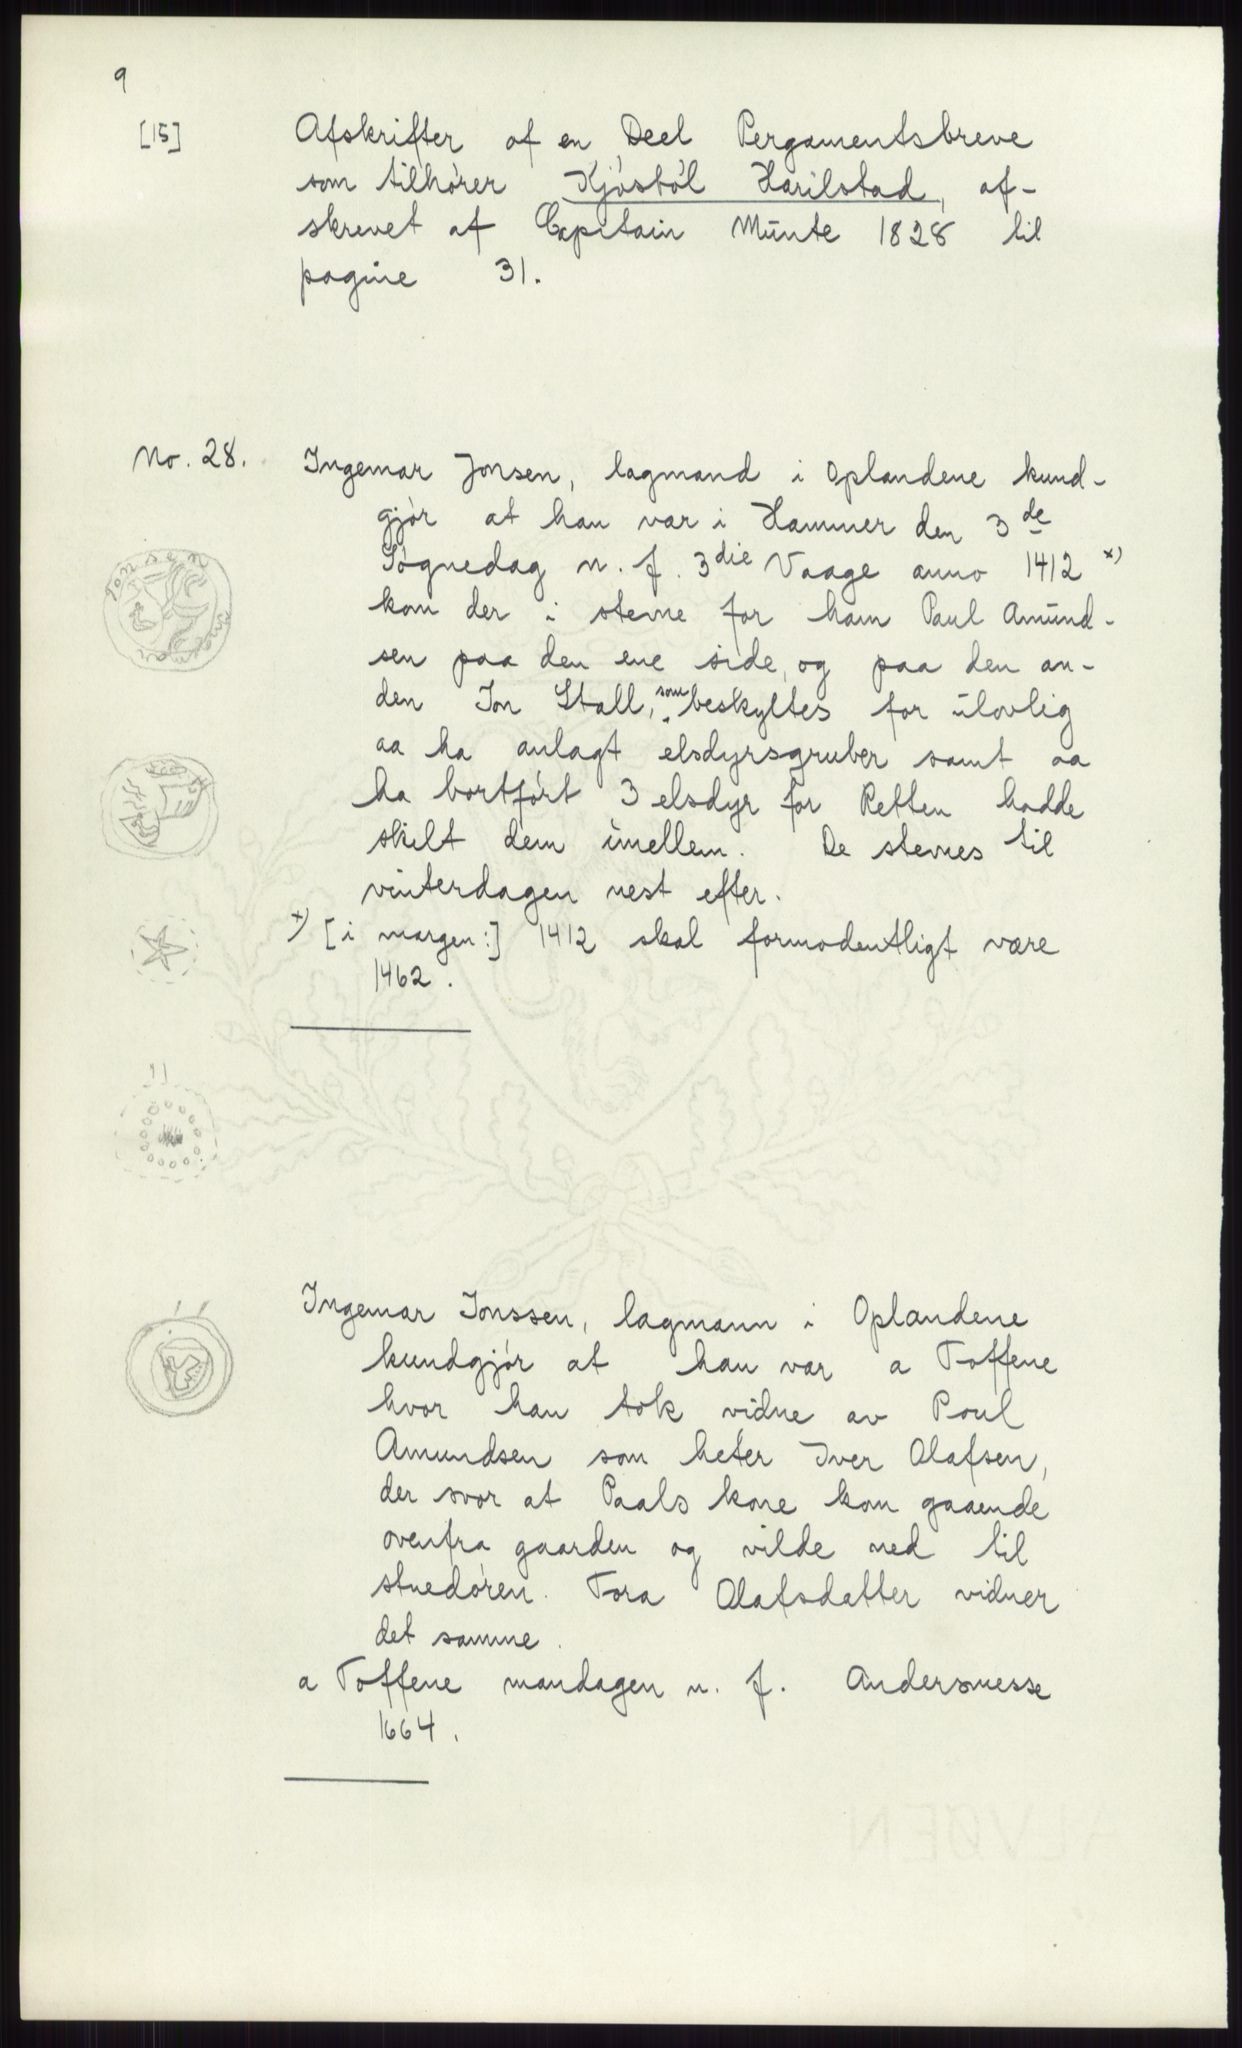 9
[15]
Afskrifter af en Deel Pergamentsbreve
som tilhører Kjøstøl Harilstad, af-
skrevet af Capitain Münte 1828 til
pagine 31.
No. 28.
Ingemar Jonsen, lagmand i Oplandene kund-
gjør at han var i Hammer den 3de
Søgnedag n. f. 3die Vaage anno 1412 x)
kom der i stevne for ham Paul Amund-
sen paa den ene side, og paa den an-
den Jon Stall, som beskyltes for ulovlig
aa ha anlagt elsdyrsgruber samt aa
ha bortført 3 elsdyr før Retten hadde
skilt dem imellem. De stevnes til
vinterdagen nest efter.
x) [i margen:] 1412 skal formodentligt være
1462.
Ingemar Jonssen, lagmann i Oplandene
kundgjør at han var a Toffene
hvor han tok vidne av Poul
Amundsen som heter Iver Olafsen,
der svor at Paals kone kom gaaende
ovenfra gaarden og vilde ned til
stuedøren. Tora Olafsdatter vidner
det samme.
a Toffene mandagen n. f. Andersmesse
1664.
ALVØEN